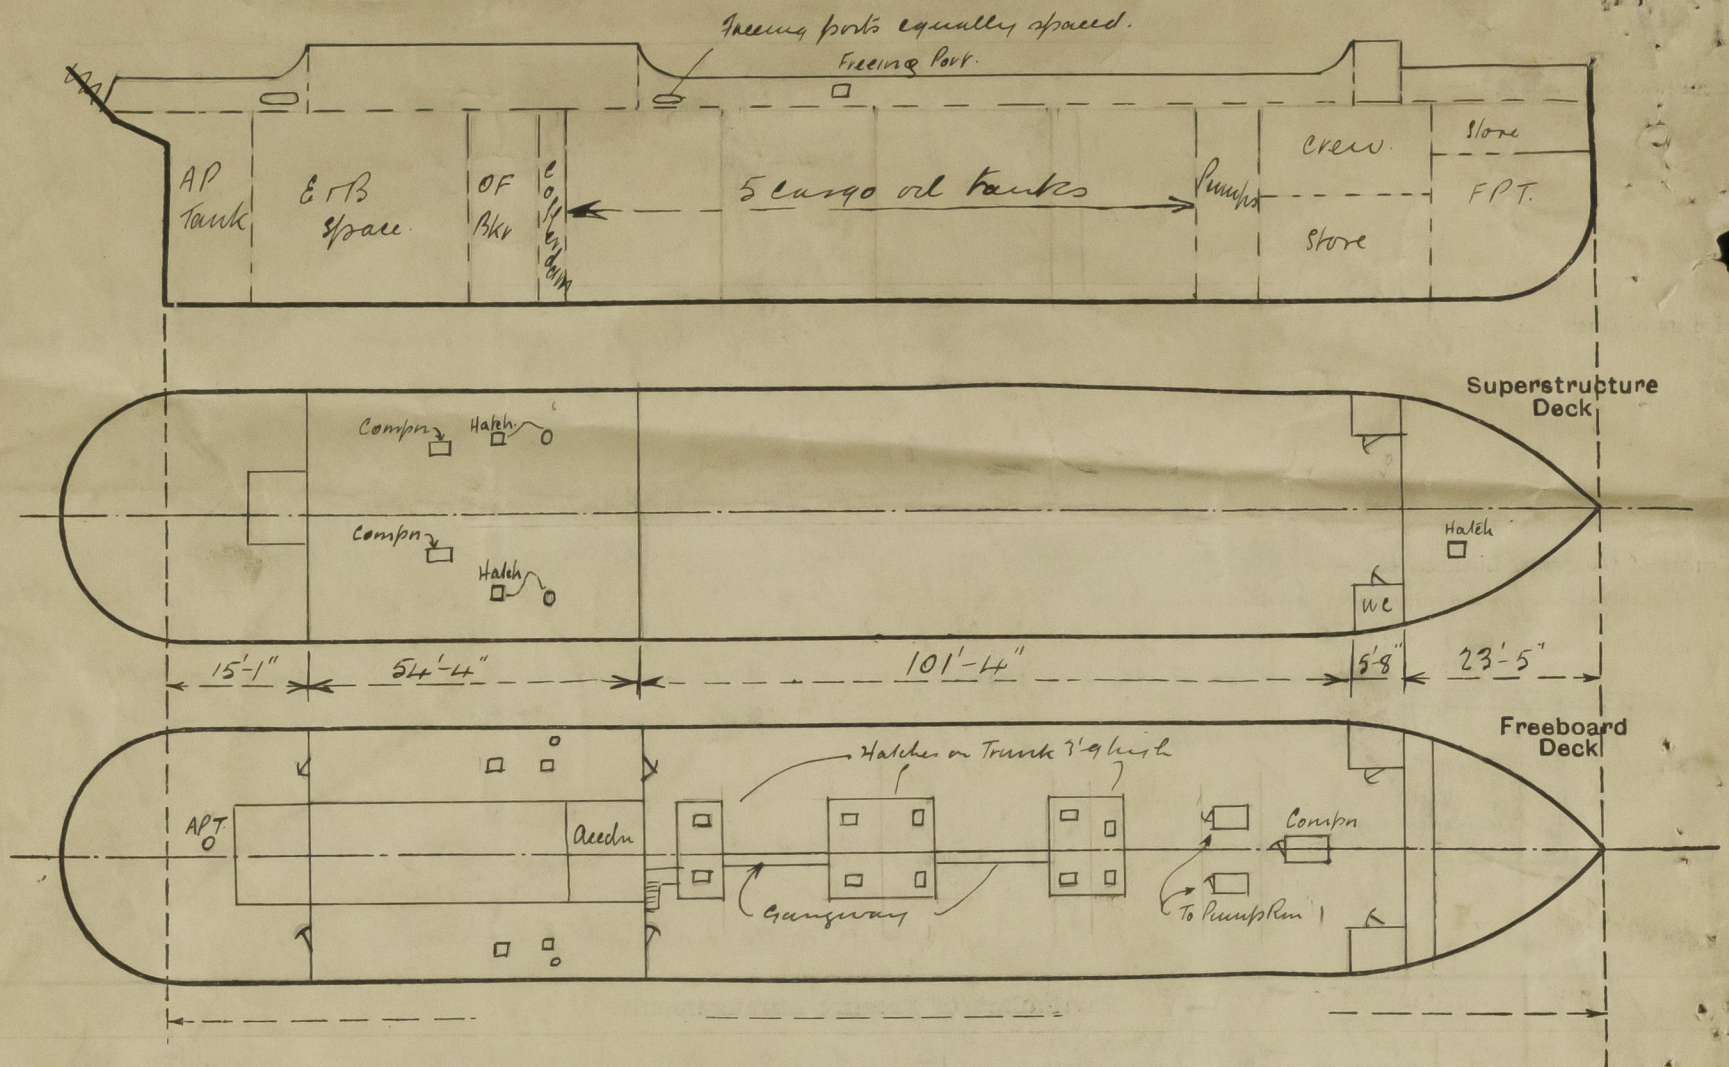 Freeing ports equally spaced.
Freeing Port.
AP
Tank
E & B
Space.
OF
Bkr
Cofferdam
5 cargo oil tanks
Pumps
Crew.
Store
Store
F.P.T.
Superstructure
Deck
Compn
Hatch.
Compn
Hatch
Hatch
WC
15'-1"
54'-4"
101'-4"
5'-8"
23'-5"
Freeboard
Deck
Hatches on Trunk 3'9 high
APT.
Accdn
Compn
Gangway
To Pump Rm